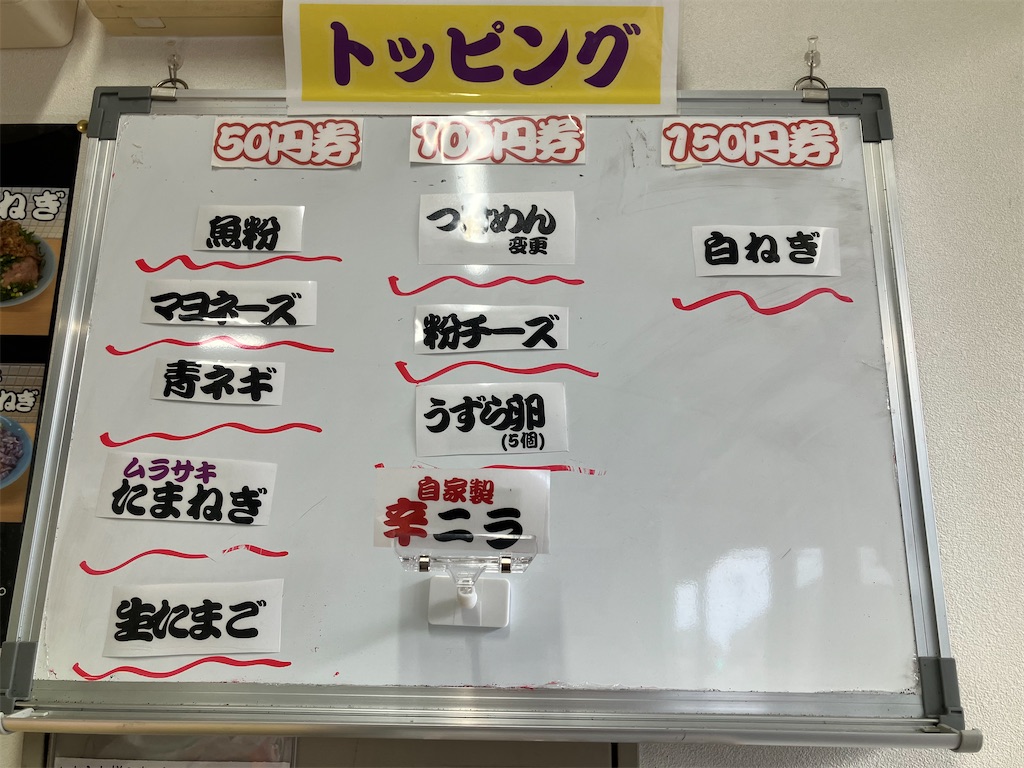 トッピング
50円券
魚粉
マヨネーズ
青ネギ
ムラサキ
たまねぎ
生たまご
100円券
つけめん
変更
粉チーズ
うずら卵
(5個)
自家製
辛ニラ
150円券
白ねぎ
ねぎ
ねぎ